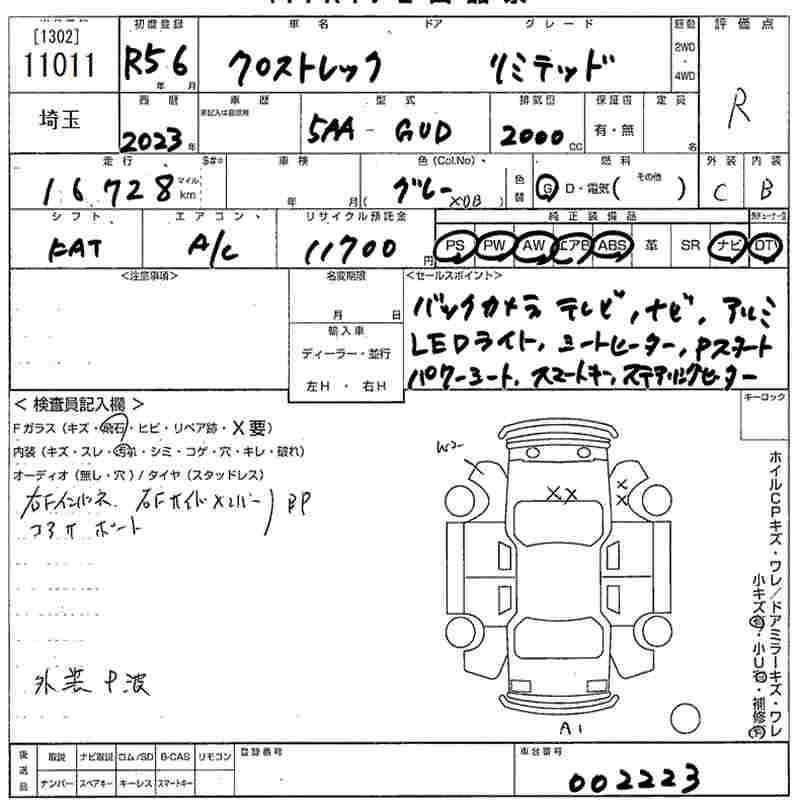 [1302]
11011
初度登録
R5 6
年 月
車名
ドア
グレード
クロストレック
リミテッド
駆動
2WD
4WD
評価点
R
埼玉
西暦
2023
年
車歴
型式
5AA - GUD
排気量
2000
CC
保証書
有・無
定員
名
走行
16728
マイル
km
車検
年 月
色(Col.No)
グレー
XDB
色替
燃料
G D・電気( その他 )
外装
C
内装
B
シフト
FAT
エアコン
A/C
リサイクル預託金
11700
円
純正装備品
PS PW AW エアB ABS 革 SR ナビ DTV
<注意事項>
名変期限
月 日
輸入車
ディーラー・並行
左H ・ 右H
<セールスポイント>
バックカメラ テレビ,ナビ,アルミ
LEDライト,シートヒーター,Pスタート
パワーシート,スマートキー,ステアリングヒーター
<検査員記入欄>
Fガラス(キズ・飛石・ヒビ・リペア跡・X要)
内装(キズ・スレ・汚れ・シミ・コゲ・穴・キレ・破れ)
オーディオ(無し・穴)/タイヤ(スタッドレス)
右Fインパネ、右Fサイドメンバー BP
コアサポート
外装中波
キーロック
W2
XX
X
X
A1
ホイルCPキズ・ワレ/ドアミラーキズ・ワレ
小キズ有・小U有・補修
後送品
取説 ナビ取説 ロム/SD B-CAS リモコン
ナンバー スペアキー キーレス スマートキー
登録番号
車台番号
002223